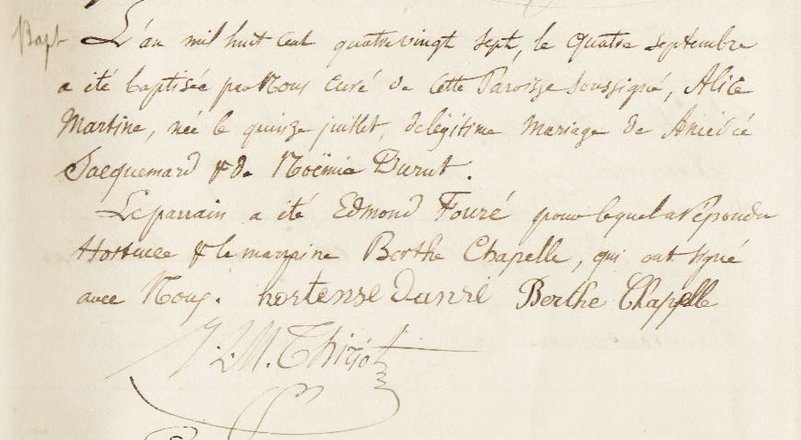 Bapt
L'an mil huit cent quatre vingt sept, le quatre septembre
a été baptisée par Nous Curé de cette Paroisse soussigné, Alice
Martine, née le quinze juillet, de légitime mariage de Amédée
Jacquemard & de Noëmie Durut.
Le parrain a été Edmond Fouré pour lequel a répondu
Hortense & le marraine Berthe Chapelle, qui ont signé
avec Nous. hortense Berthe Chapelle
J. M. Thiriot